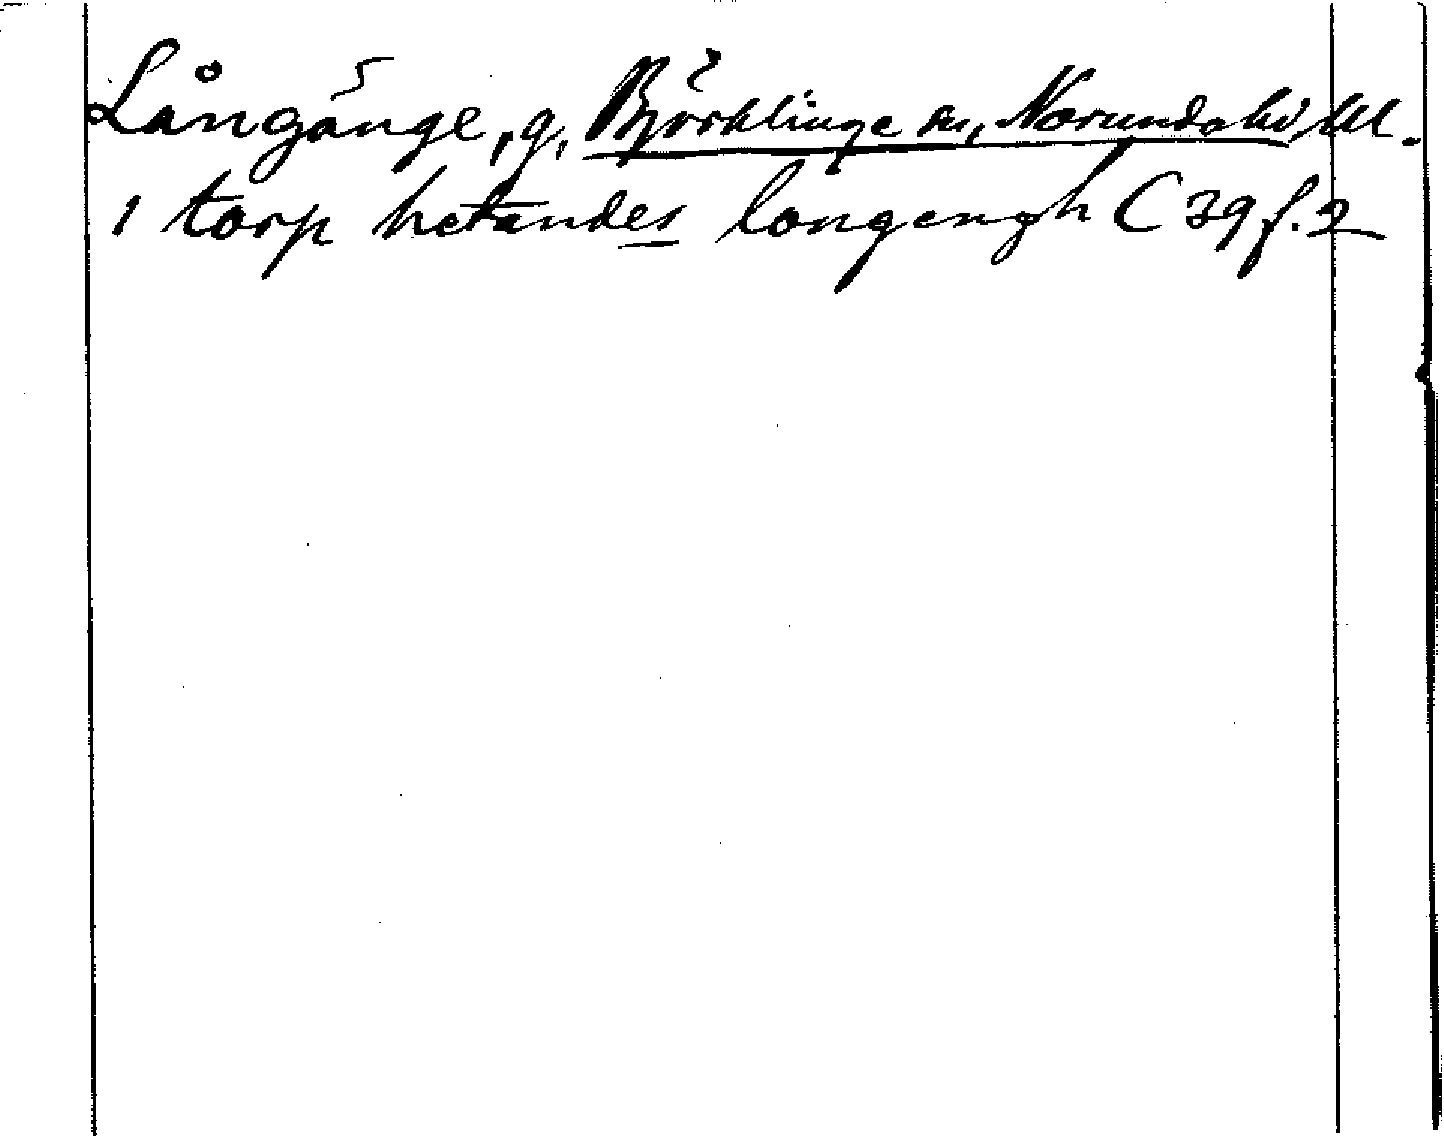 Långänge, g, Björklinge sn, Norunda hd, Upl.
1 torp hetandes longengh C 39 f. 2